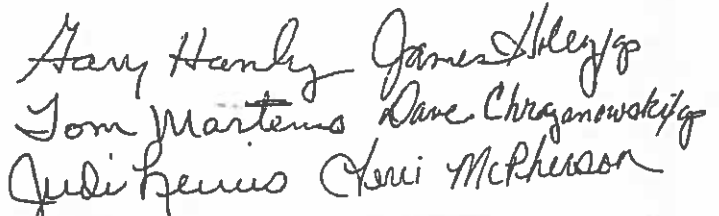 Gary Hanly James Holez/gp
Tom Martens Dave Chrzanowski/gp
Judi Lewis Cheri McPherson